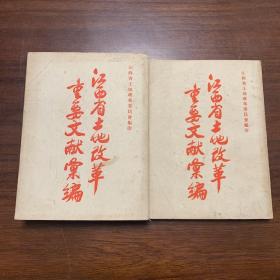 江西省土地改革委員會編印
江西省土地改革
重要文献彙編
江西省土地改革委員會編印
江西省土地改革
重要文献彙編